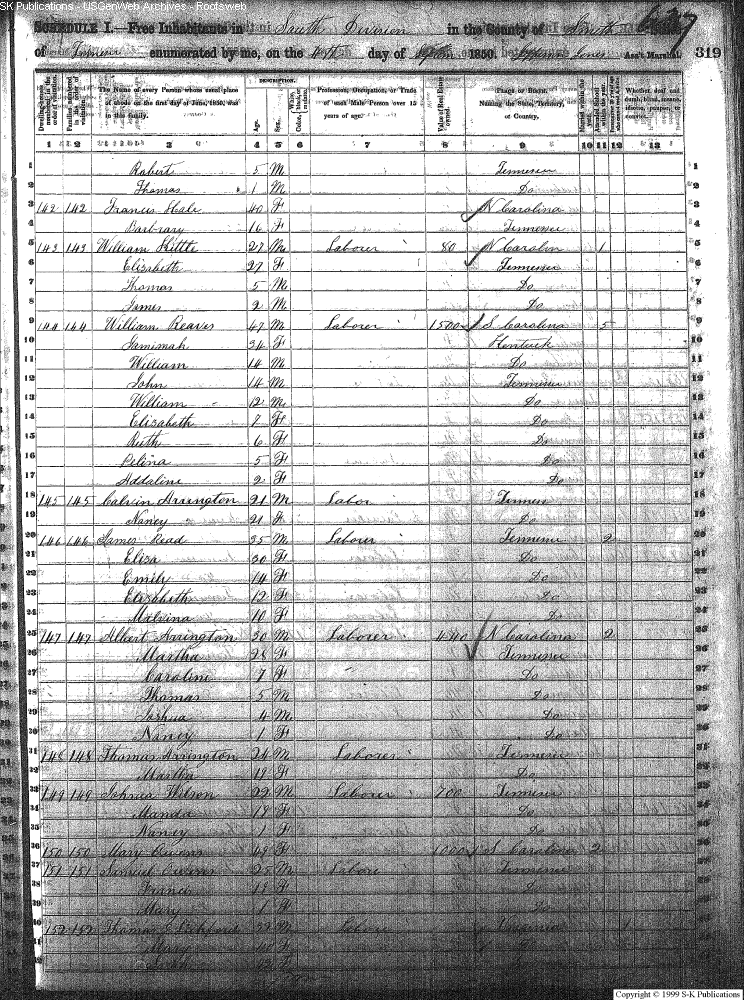 SK Publications - USGenWeb Archives - Rootsweb
SCHEDULE I.—Free Inhabitants in South Division in the County of Smith
of Tennessee enumerated by me, on the day of 1850. Jones Ass't Marshal. 319
Dwelling-houses numbered in the order of visitation.
Families numbered in the order of visitation.
The Name of every Person whose usual place of abode on the first day of June, 1850, was in this family.
DESCRIPTION.
Age.
Sex.
Color, White, black, or mulatto.
Profession, Occupation, or Trade of each Male Person over 15 years of age.
Value of Real Estate owned.
PLACE OF BIRTH. Naming the State, Territory, or Country.
Married within the year.
Attended School within the year.
Whether deaf and dumb, blind, insane, idiotic, pauper, or convict.
1 2 3 4 5 6 7 8 9 10 11 12 13
1 Robert 5 M Tennessee 1
2 Thomas 1 M Do 2
3 142 142 Frances Hale 40 F N Carolina 3
4 Barbrary 16 F Tennessee 4
5 143 143 William 27 M Laborer 80 N Carolin 1 5
6 Elizabeth 27 F Tennessee 6
7 Thomas 5 M Do 7
8 James 2 M Do 8
9 144 144 William Reaves 47 M Laborer 1500 S Carolina 5 9
10 Jamimah 34 F Kentuck 10
11 William 14 M Do 11
12 John 14 M Tennessee 12
13 William 12 M Do 13
14 Elizabeth 7 F Do 14
15 Ruth 6 F Do 15
16 5 F Do 16
17 Addaline 2 F Do 17
18 145 145 Calvin Arrington 21 M Labor Tenness 18
19 Nancy 21 F Do 19
20 146 146 James Read 35 M Laborer Tennessee 2 20
21 Eliza 30 F Do 21
22 Emily 14 F Do 22
23 Elizabeth 12 F Do 23
24 Malvina 10 F Do 24
25 147 147 Albert Arrington 30 M Laborer 440 N Carolina 2 25
26 Martha 28 F Tennessee 26
27 Caroline 7 F Do 27
28 Thomas 5 M Do 28
29 Joshua 4 M Do 29
30 Nancy 1 F Do 30
31 148 148 Thomas Arrington 24 M Laborer Tennessee 31
32 Martha 19 F Do 32
33 149 149 Joshua Wilson 22 M Laborer 700 Tennessee 33
34 Manda 19 F Do 34
35 Nancy 1 F Do 35
36 150 150 Mary Owens 49 F 1000 S Carolina 2 36
37 151 151 Samuel Owens 25 M Labore Tennessee 37
38 19 F D 38
39 Mary 1 F Do 39
40 152 152 Thomas M Labore Virginia 1 40
41 Mary 40 F 41
Sarah F
Copyright © 1999 S-K Publications